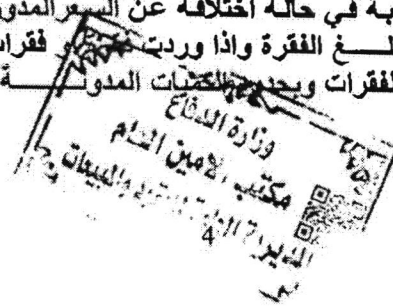 به في حالة اختلافه عن السعر المدو
لـغ الفقرة واذا وردت فقرات
لفقرات وبحدود الكميات المدونـــة
وزارة الدفاع
مكتب الامين العام
المديرية العامة للعقود والمبيعات
4